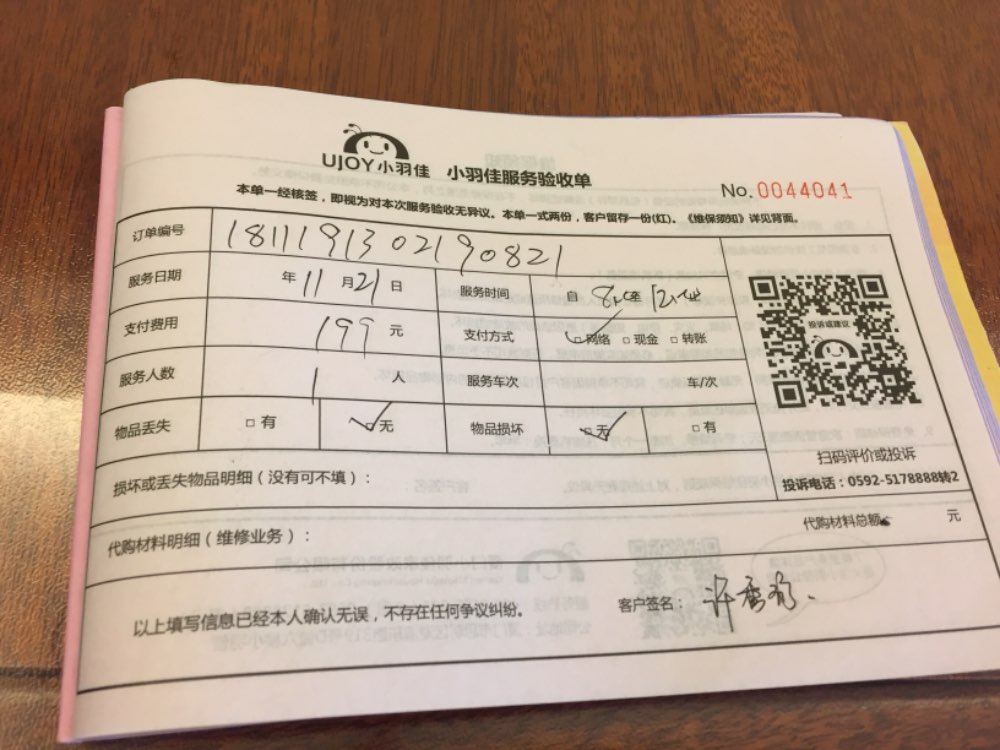 UJOY小羽佳 小羽佳服务验收单
No.0044041
本单一经核签，即视为对本次服务验收无异议。本单一式两份，客户留存一份(红)。《维保须知》详见背面。
订单编号 181119130219082​1
服务日期 年 11 月 21 日 服务时间 自 8 至 12
支付费用 199 元 支付方式 网络 □ 现金 □ 转账
服务人数 1 人 服务车次 车/次
物品丢失 □ 有 ☑ 无 物品损坏 ☑ 无 □ 有
投诉或建议
扫码评价或投诉
投诉电话：0592-5178888转2
损坏或丢失物品明细（没有可不填）：
代购材料明细（维修业务）： 代购材料总额 元
以上填写信息已经本人确认无误，不存在任何争议纠纷。 客户签名： 许